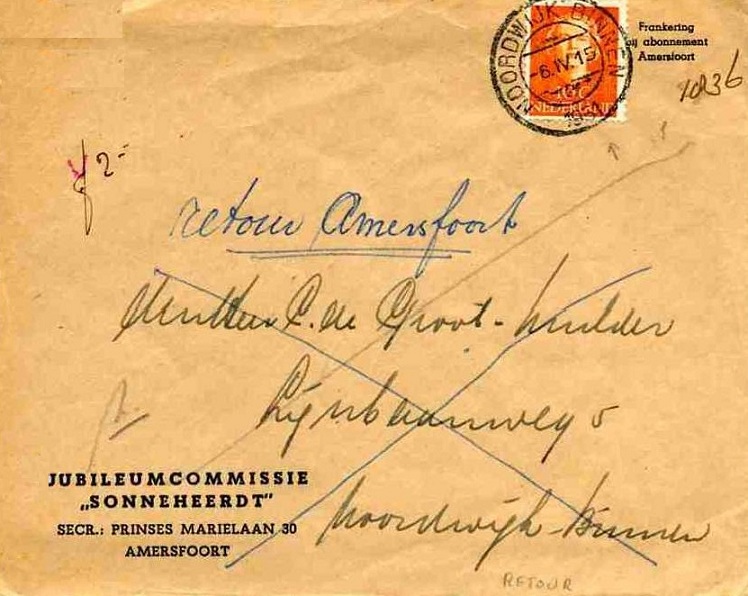 Frankering
bij abonnement
Amersfoort
NOORDWIJK BINNEN
-6.IV.15
10c
NEDERLAND
1036
f 2-
retour Amersfoort
C. de Groot-Mulder
Lijnbaanweg 5
Noordwijk-Binnen
JUBILEUMCOMMISSIE
„SONNEHEERDT”
SECR.: PRINSES MARIELAAN 30
AMERSFOORT
RETOUR